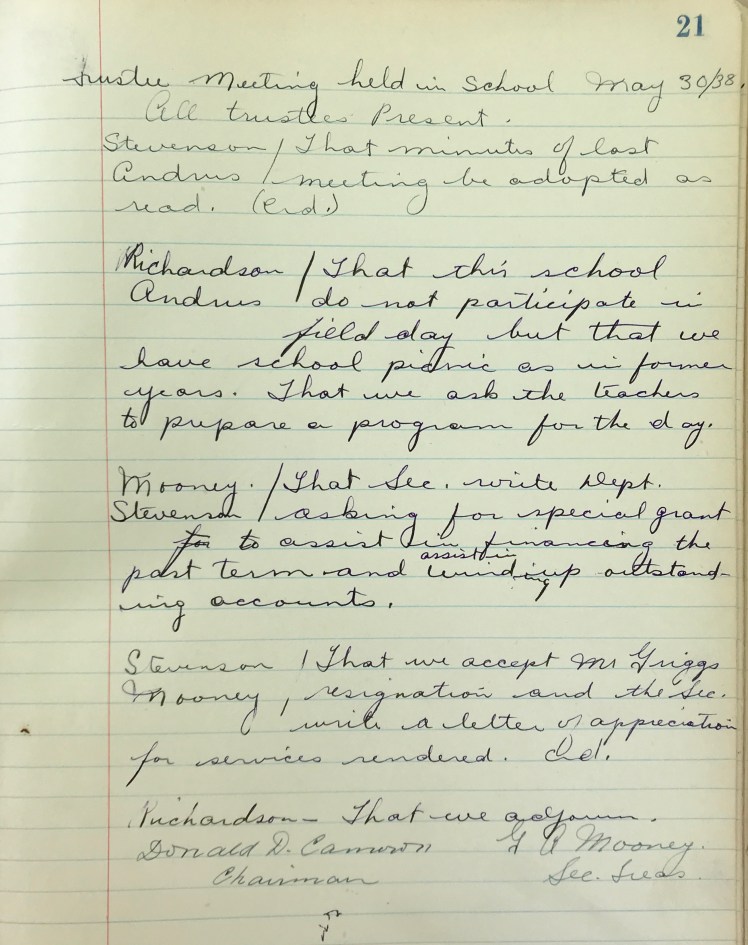 21
Trustee Meeting held in School May 30/38.
All trustees Present.
Stevenson / That minutes of last
Andrus / meeting be adopted as
read. (Crd.)
Richardson / That this school
Andrus / do not participate in
field day but that we
have school picnic as in former
years. That we ask the teachers
to prepare a program for the day.
Mooney. / That Sec. write Dept.
Stevenson / asking for special grant
for to assist in financing the
assist in
past term and winding up outstand-
ing accounts.
Stevenson / That we accept Mr Griggs
Mooney, resignation and the Sec.
write a letter of appreciation
for services rendered. Crd.
Richardson - That we adjourn.
Donald D. Cameron G A Mooney.
Chairman Sec. Treas.